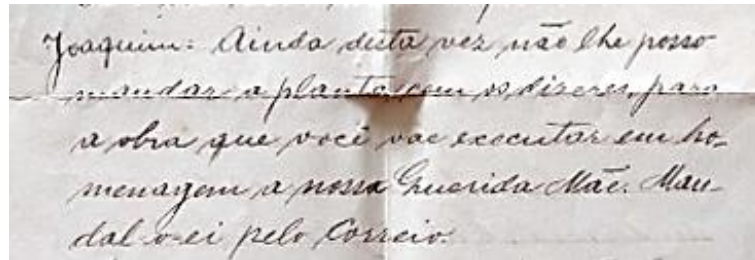 Joaquim: Ainda desta vez não lhe posso
mandar a planta com os dizeres, para
a obra que você vae executar em ho-
menagem a nossa Querida Mãe. Man-
dal-o-ei pelo Correio.